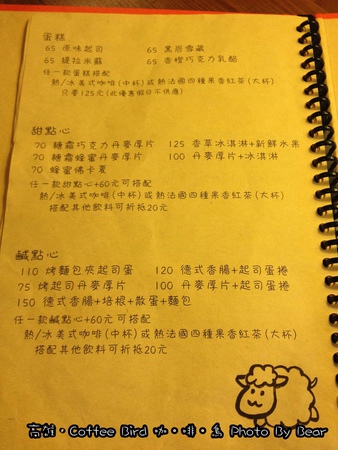 蛋糕
65 原味起司 65 黑岩雪藏
65 提拉米蘇 65 香橙巧克力乳酪
任一款蛋糕搭配
熱/冰美式咖啡(中杯)或熱法國四種果香紅茶(大杯)
只要125元(此優惠假日不供應)
甜點心
70 糖霜巧克力丹麥厚片 125 香草冰淇淋+新鮮水果
70 糖霜蜂蜜丹麥厚片 100 丹麥厚片+冰淇淋
70 蜂蜜佛卡夏
任一款甜點心+60元可搭配
熱/冰美式咖啡(中杯)或熱法國四種果香紅茶(大杯)
搭配其他飲料可折抵20元
鹹點心
110 烤麵包夾起司蛋 120 德式香腸+起司蛋捲
75 烤起司丹麥厚片 100 丹麥厚片+起司蛋捲
150 德式香腸+培根+散蛋+麵包
任一款鹹點心+60元可搭配
熱/冰美式咖啡(中杯)或熱法國四種果香紅茶(大杯)
搭配其他飲料可折抵20元
高雄・Coffee Bird 咖・啡・鳥 Photo By Bear